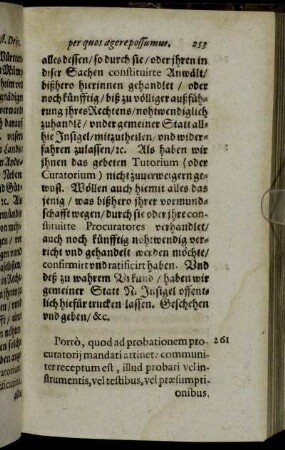 per quos agere possumus. 253
alles dessen/ so durch sie/ oder jhren in
diser Sachen constituirte Anwält/
bißhero hierinnen gehandlet / oder
noch künfftig/ biß zu völliger außfüh-
rung jhres Rechtens/ nohtwendiglich
zuhandlē/ vnder gemeiner Statt all-
hie Insigel/ mitzutheilen/ vnd wider-
fahren zulassen/ ꝛc. Als haben wir
jhnen das gebeten Tutorium (oder
Curatorium) nicht zuuerweigern ge-
wust. Wöllen auch hiemit alles das
jenig / was bißhero jhrer vormund-
schafft wegen/ durch sie oder jhre con-
stituirte Procuratores verhandlet/
auch noch künfftig nohtwendig ver-
richt vnd gehandelt werden möchte/
confirmirt vnd ratificirt haben. Vnd
deß zu wahrem Vrkund / haben wir
gemeiner Statt N. Insigel offent-
lich hiefür trucken lassen. Geschehen
vnd geben/ &c.
Porrò, quod ad probationem pro- 261
curatorij mandati attinet: communi-
ter receptum est, illud probari vel in-
strumentis, vel testibus, vel præsumpti-
onibus.